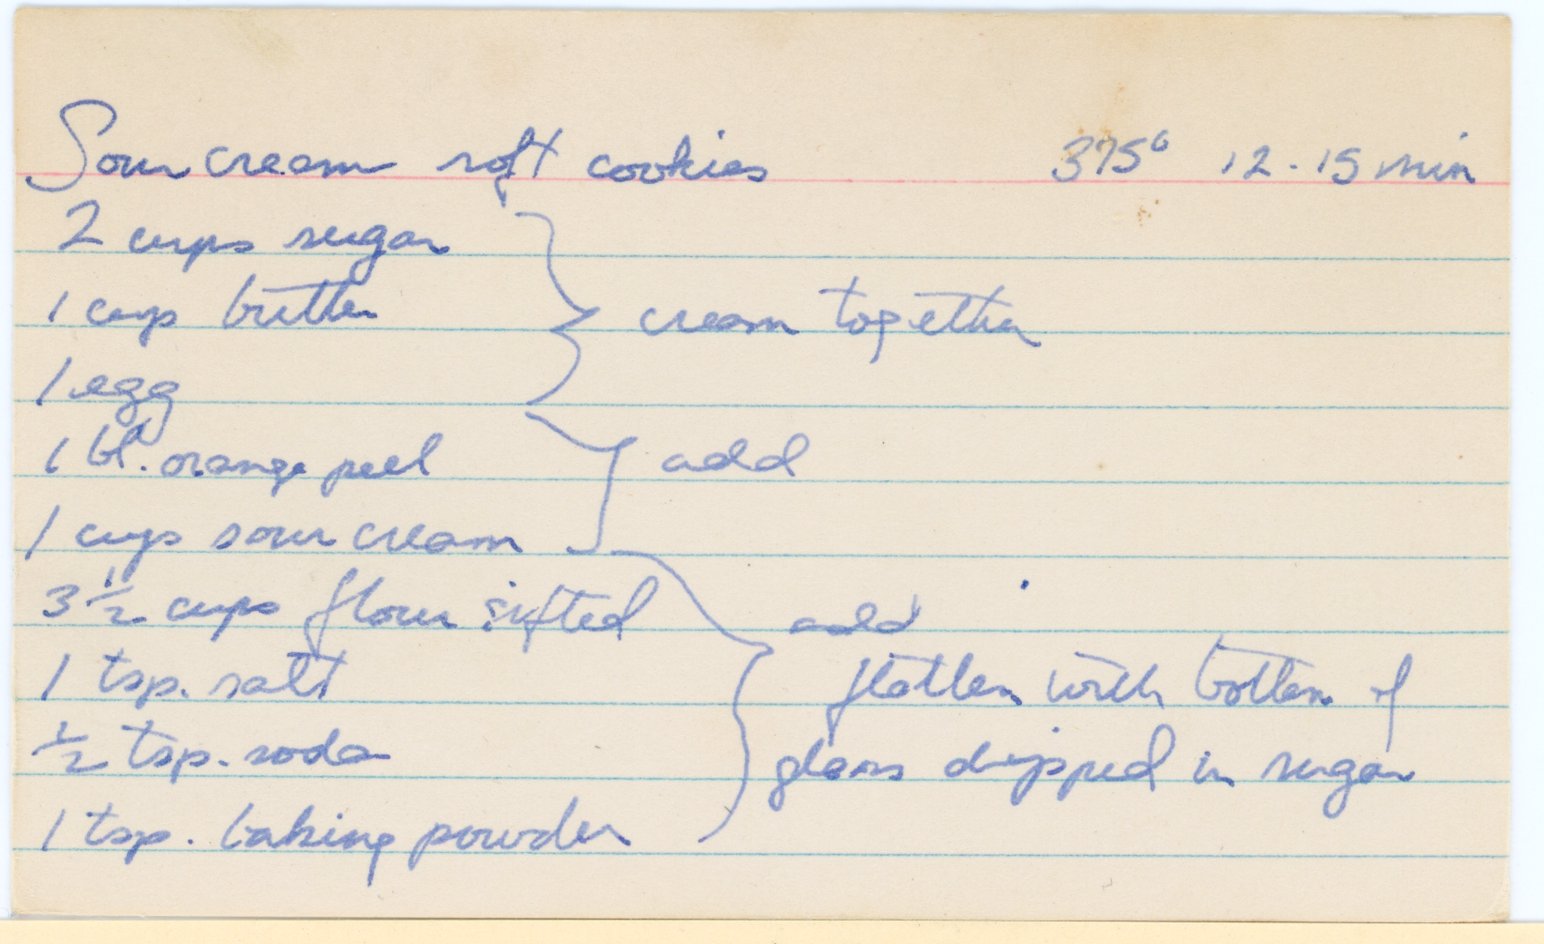 Sour cream soft cookies 375° 12-15 min
2 cups sugar
1 cup butter
1 egg
cream together
1 tbl. orange peel
1 cup sour cream
add
3 1/2 cups flour sifted
1 tsp. salt
1/2 tsp. soda
1 tsp. baking powder
add
flatten with bottom of
glass dipped in sugar